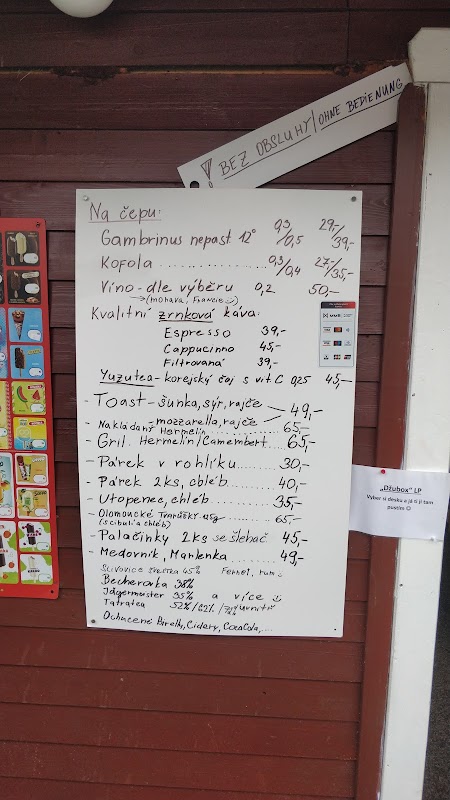 ! BEZ OBSLUHY/OHNE BEDIENUNG
Na čepu:
Gambrinus nepast 12° 0,3/0,5 29,-/39,-
Kofola 0,3/0,4 27,-/35,-
Víno - dle výběru 0,2 50,-
→(Morava, Francie)
Kvalitní zrnková káva:
Espresso 39,-
Cappucino 45,-
Filtrovaná 39,-
Yuzutea - korejský čaj s vit. C 0,25 45,-
- Toast - šunka, sýr, rajče
mozzarella, rajče > 49,-
- Nakládaný Hermelín 65,-
- Gril. Hermelín/Camembert 65,-
- Párek v rohlíku 30,-
- Párek 2ks, chléb 40,-
- Utopenec, chléb 35,-
- Olomoucké Tvarůžky 65,-
(s cibulí a chléb)
- Palačinky 2ks se šlehač 45,-
- Medovník, Marlenka 49,-
Slivovice 45% Fernet, rum
Becherovka 38%
Jägermaster 35% a více
Tatratea 52%/62%
Ochucené Birelly, Cidery, CocaCola,...
„Džubox" LP
Vyber si desku a já ti ji tam
pustím ☺